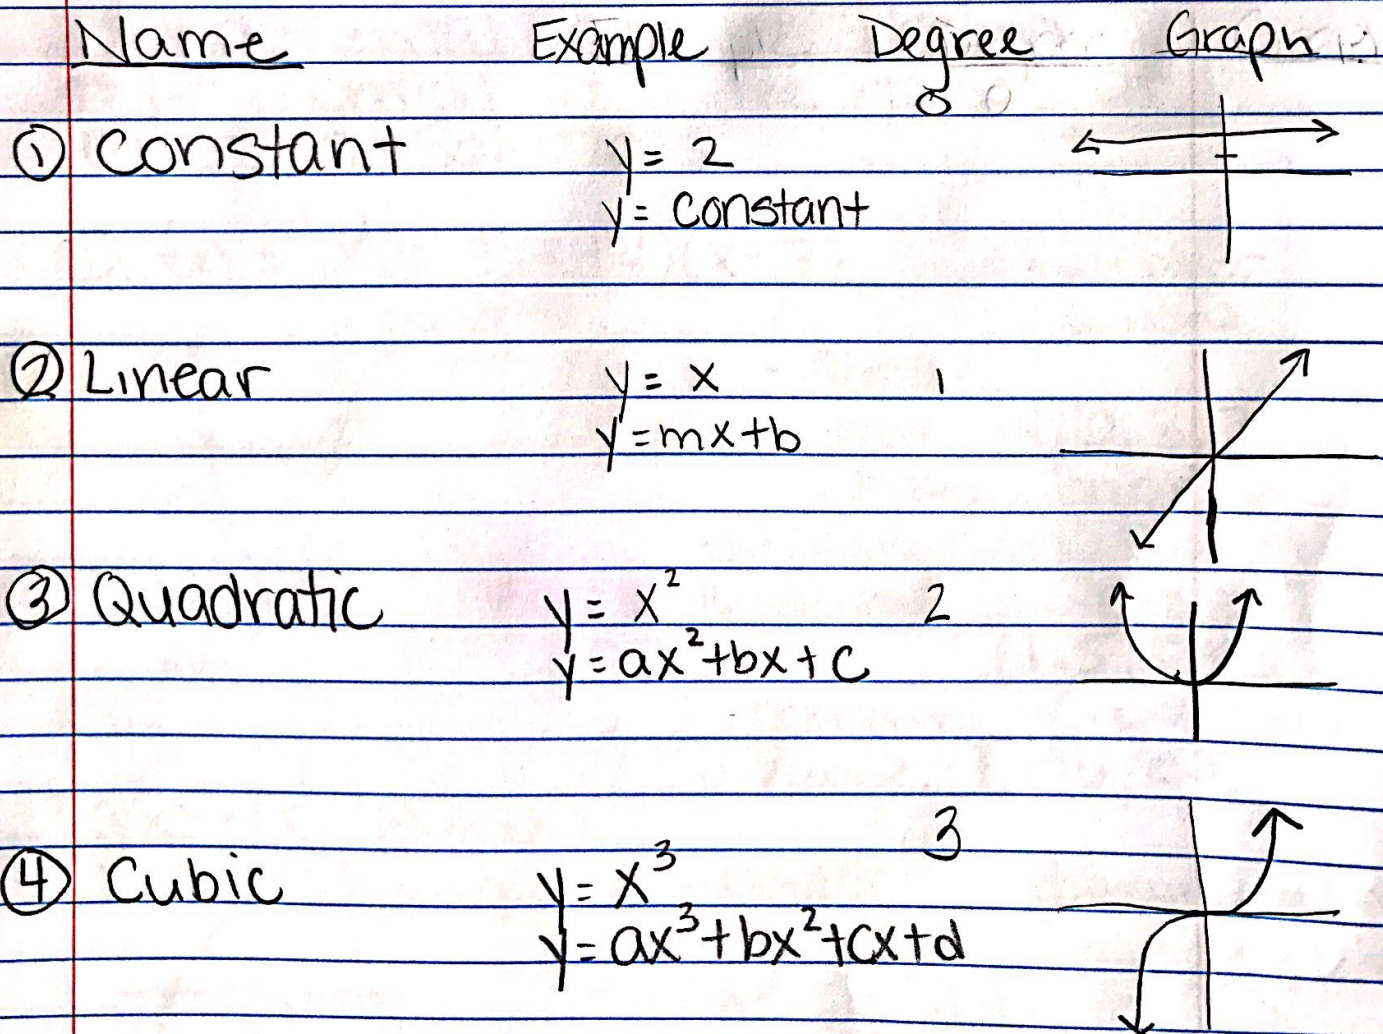 Name Example Degree Graph
0
① Constant y = 2
y = constant
② Linear y = x 1
y = mx + b
③ Quadratic y = x² 2
y = ax² + bx + c
3
④ Cubic y = x³
y = ax³ + bx² + cx + d